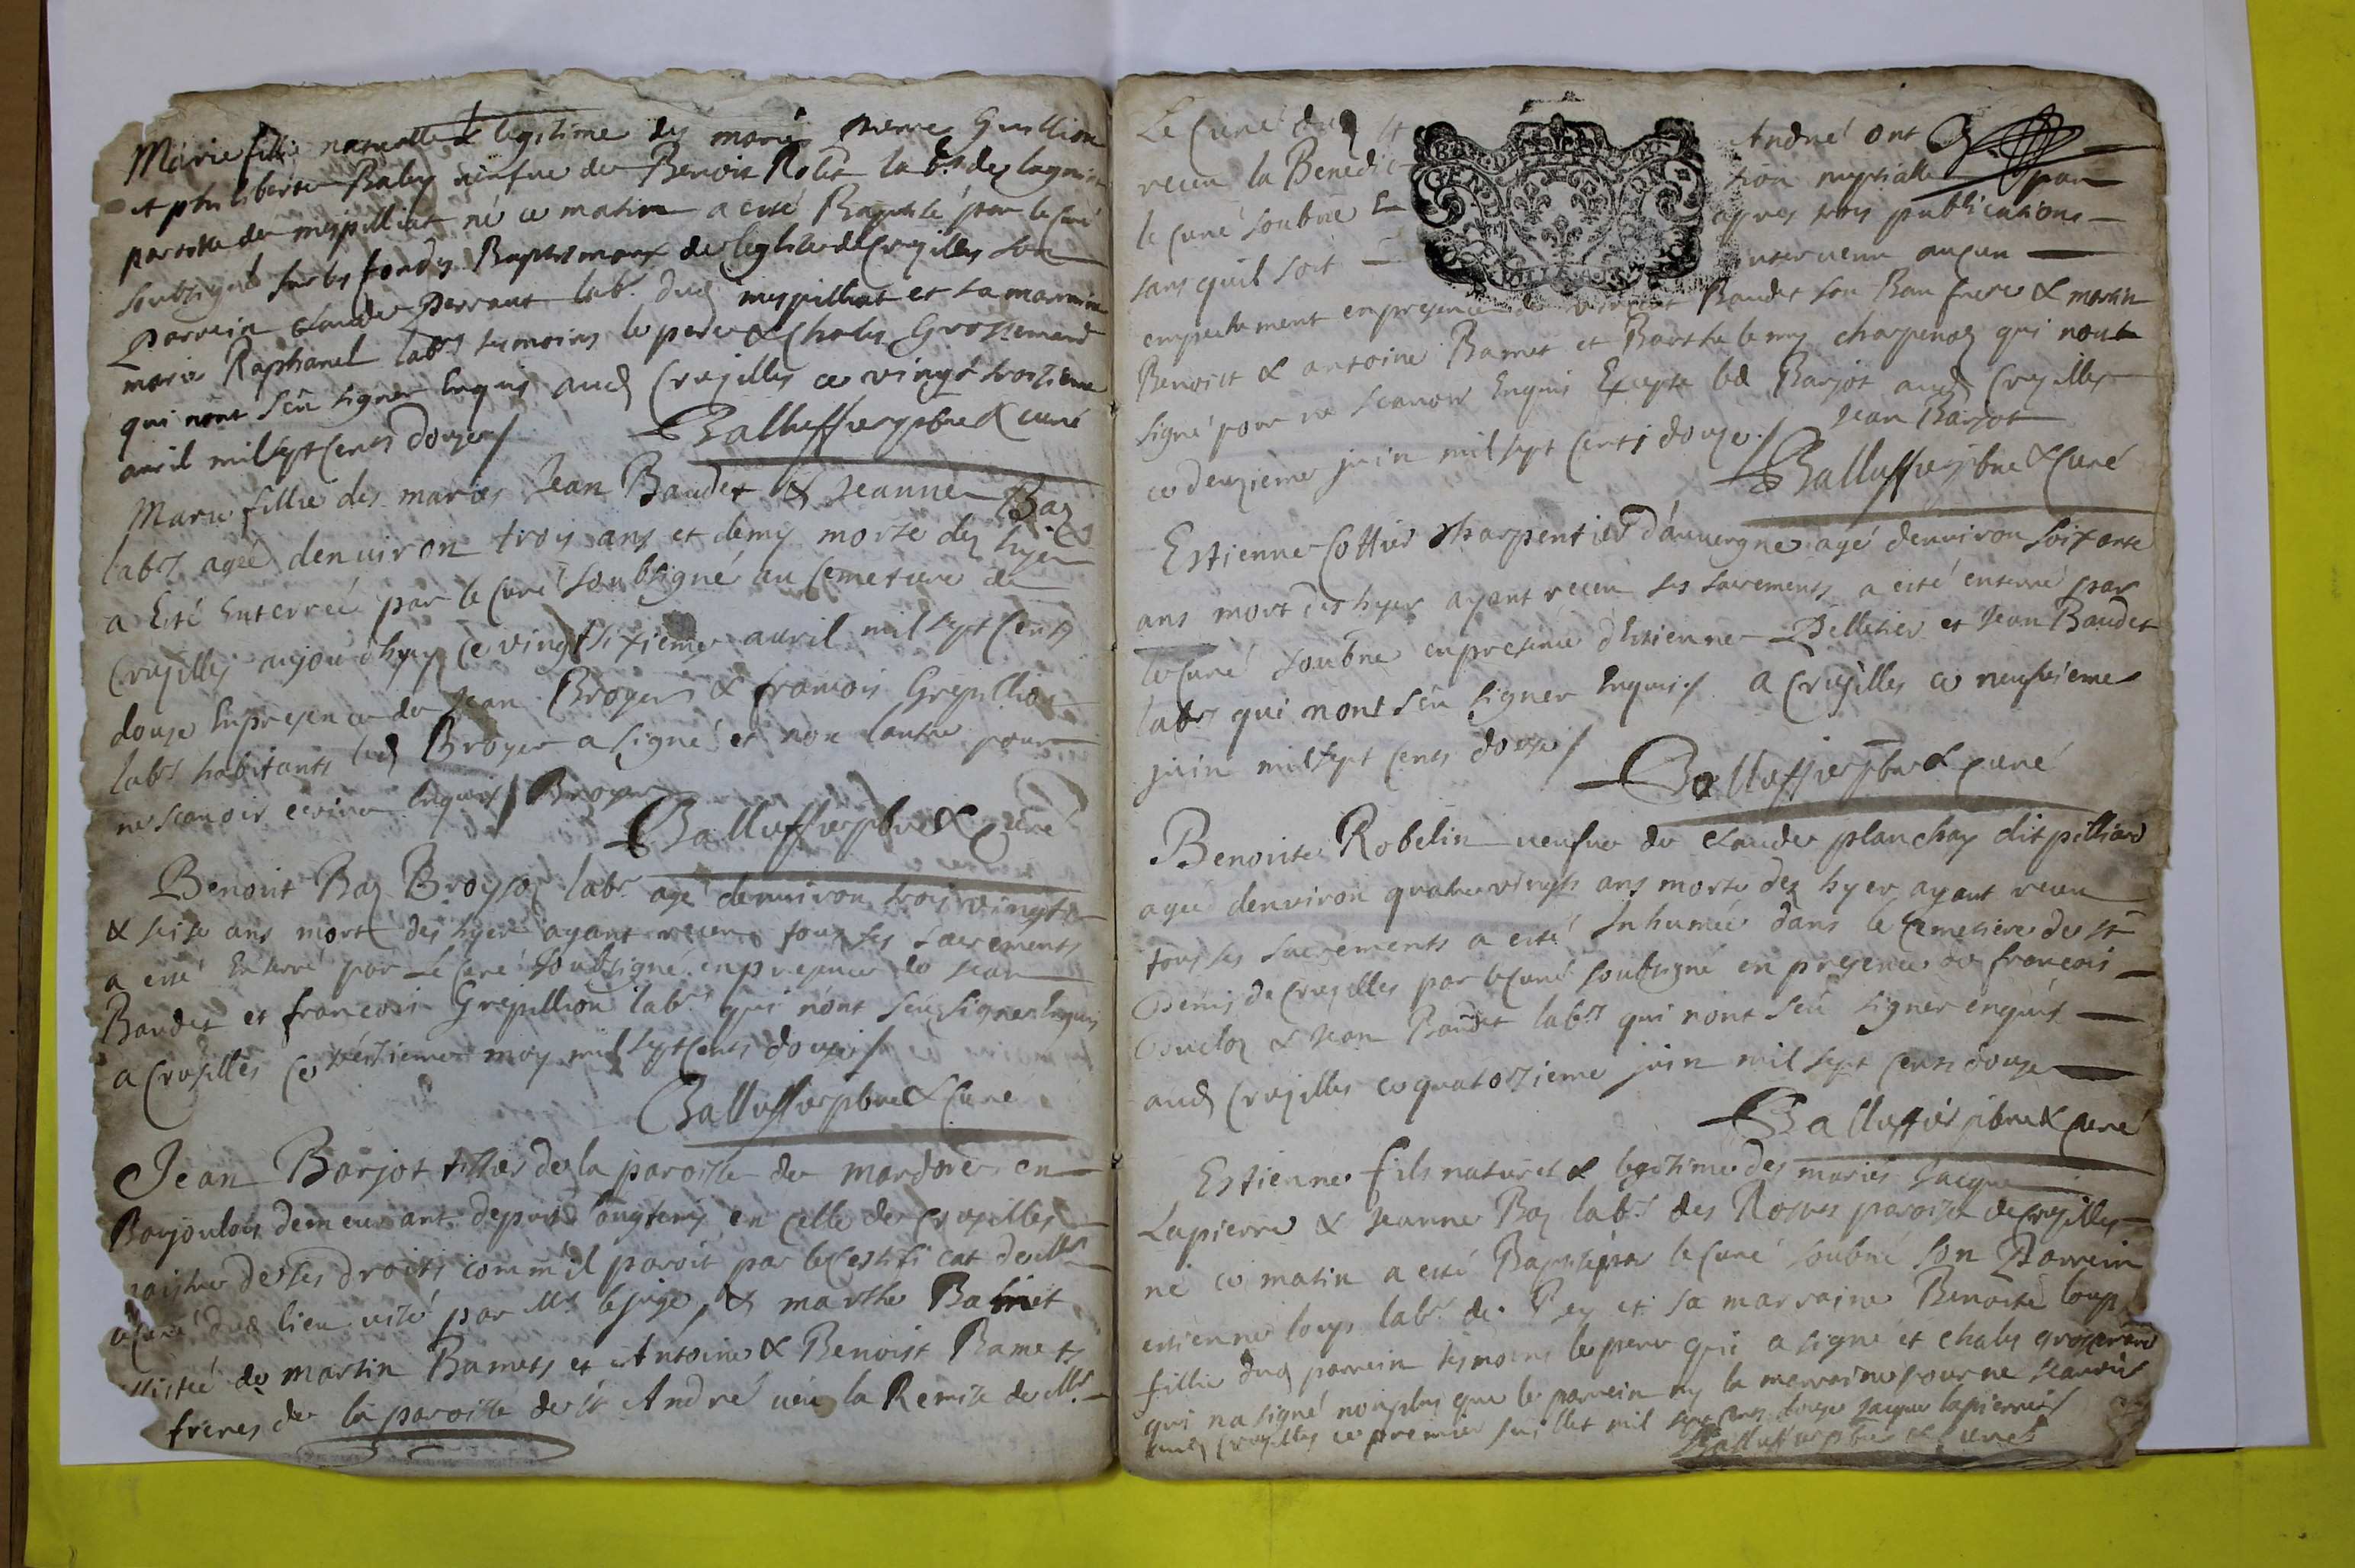 Marie fille naturelle & legitime des mariés Guillion
et philiberte Baley niefue de Benoit Rolet
paroisse de mespilliat né ce matin a esté Baptisé par le Curé
soubsigné sur les fonds Baptismaux de leglise de Crusilles son
Parrein Claude Perraut labr. dud mespilliat et sa marraine
marie Raphanel labrs tesmoins le pere & Chales Grossemard
qui nont sçu signer Enquis aud Crusilles ce vingt troisieme
auril mil sept Cents douze /
Balluffier pbre & curé
Marie fillie des mariés Jean Baudet & Jeanne Baz
labrs agée denuiron trois ans et demy morte dez hyer
a Esté Enterreé par le Curé soubsigné au Cemetiere de
Crusilles aujourdhuy ce vingt sixieme auril mil sept Cents
douze En presence de Jean Broyer & francois Grepillion
labrs habitants led Broyer a signé et non lautre pour
ne scauoir ecrire Enquis / Broyer
Balluffier pbre & Curé
Benoit Baz Broysoz labr. agé denuiron trois vingts
& seise ans mort des hyer ayant receu tous ses sacrements
a esté Enterré par Le Curé soubsigné en presence de Jean
Baudet et francois Grepillion labrs qui nont sceu signer Enquis
a Crusilles ce may mil sept Cents douze /
Balluffier pbre & Cure
Jean Barjot tissier de la paroisse de mardore en
Baujoulois demeurant depuis longtems en celle de Crusilles
maistre de ses droits comm'il paroit par le Certificat de Mr
le Curé dud lieu visé par Mr le juge, & marthe Bamet
assistée de martin Bamets et Antoine & Benoist Bamets
freres de la paroisse de St André ueu la Remise de Mr
Le Curé dud St André ont
receu la Benediction nuptialle par
le Curé soubné En apres trois publications
sans qu'il soit interuenu aucun
empechement en presence de Baudet son Bau frere & martin
Benoist & antoine Bamet et Barthelemy charpenoz qui nont
signé pour ne scauoir Enquis Excepté led Barjot aud Crusilles
ce deuzieme juin mil sept Cents douze / Jean Barjot
Balluffier pbre & Curé
Estienne Cottier charpentier d'auuergne agé denuiron soixante
ans mort des hyer ayant receu ses sacrements a esté enterré par
le Curé soubné en presence d'Estienne Pelletier et Jean Baudet
labrs qui nont sçu signer Enquis / A Crusilles ce neufuieme
juin mil sept Cents douze /
Balluffier pbre & Curé
Benoiste Robelin ueufue de Claude planchay dit pilliard
agée denuiron quatre vingts ans morte dez hyer ayant receu
tous ses sacrements a esté Inhumée dans le Cemetiere de St
Denis de Crusilles par le Curé soubsigné en presence de francois
& Jean Baudet labrs qui nont sceu signer enquis
aud Crusilles ce quatorzieme juin mil sept Cents douze
Balluffier pbre & Curé
Estienne fils naturel & legitime des mariés Jacque
Lapierre & Jeanne Baz labrs des Rosnes paroisse de Crusilles
né ce matin a esté Baptisé par le Curé soubné son Parrein
estienne loup labr. de Rey et sa marraine Benoiste loup
fillie dud parrein tesmoins le pere qui a signé et chales grossemard
qui na signé nonplus que le parrein ny la marraine pour ne scauoir
aud Crusilles ce premier juillet mil sept Cents douze Jacque lapierre /
Balluffier pbre & Curé